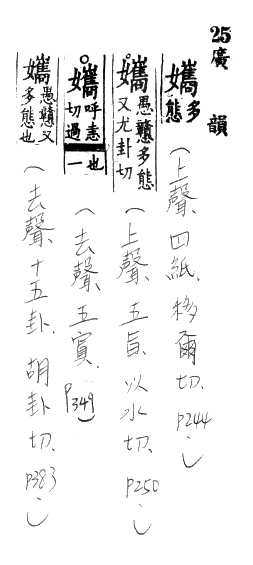 25廣韻
孈多態(上聲、四紙、移爾切、P244。)
孈愚戇多態又尤卦切(上聲、五旨、以水切、P250。)
孈呼恚切過也一(去聲、五寘、P349)
孈愚戇又多態也(去聲、十五卦、胡卦切、P383。)